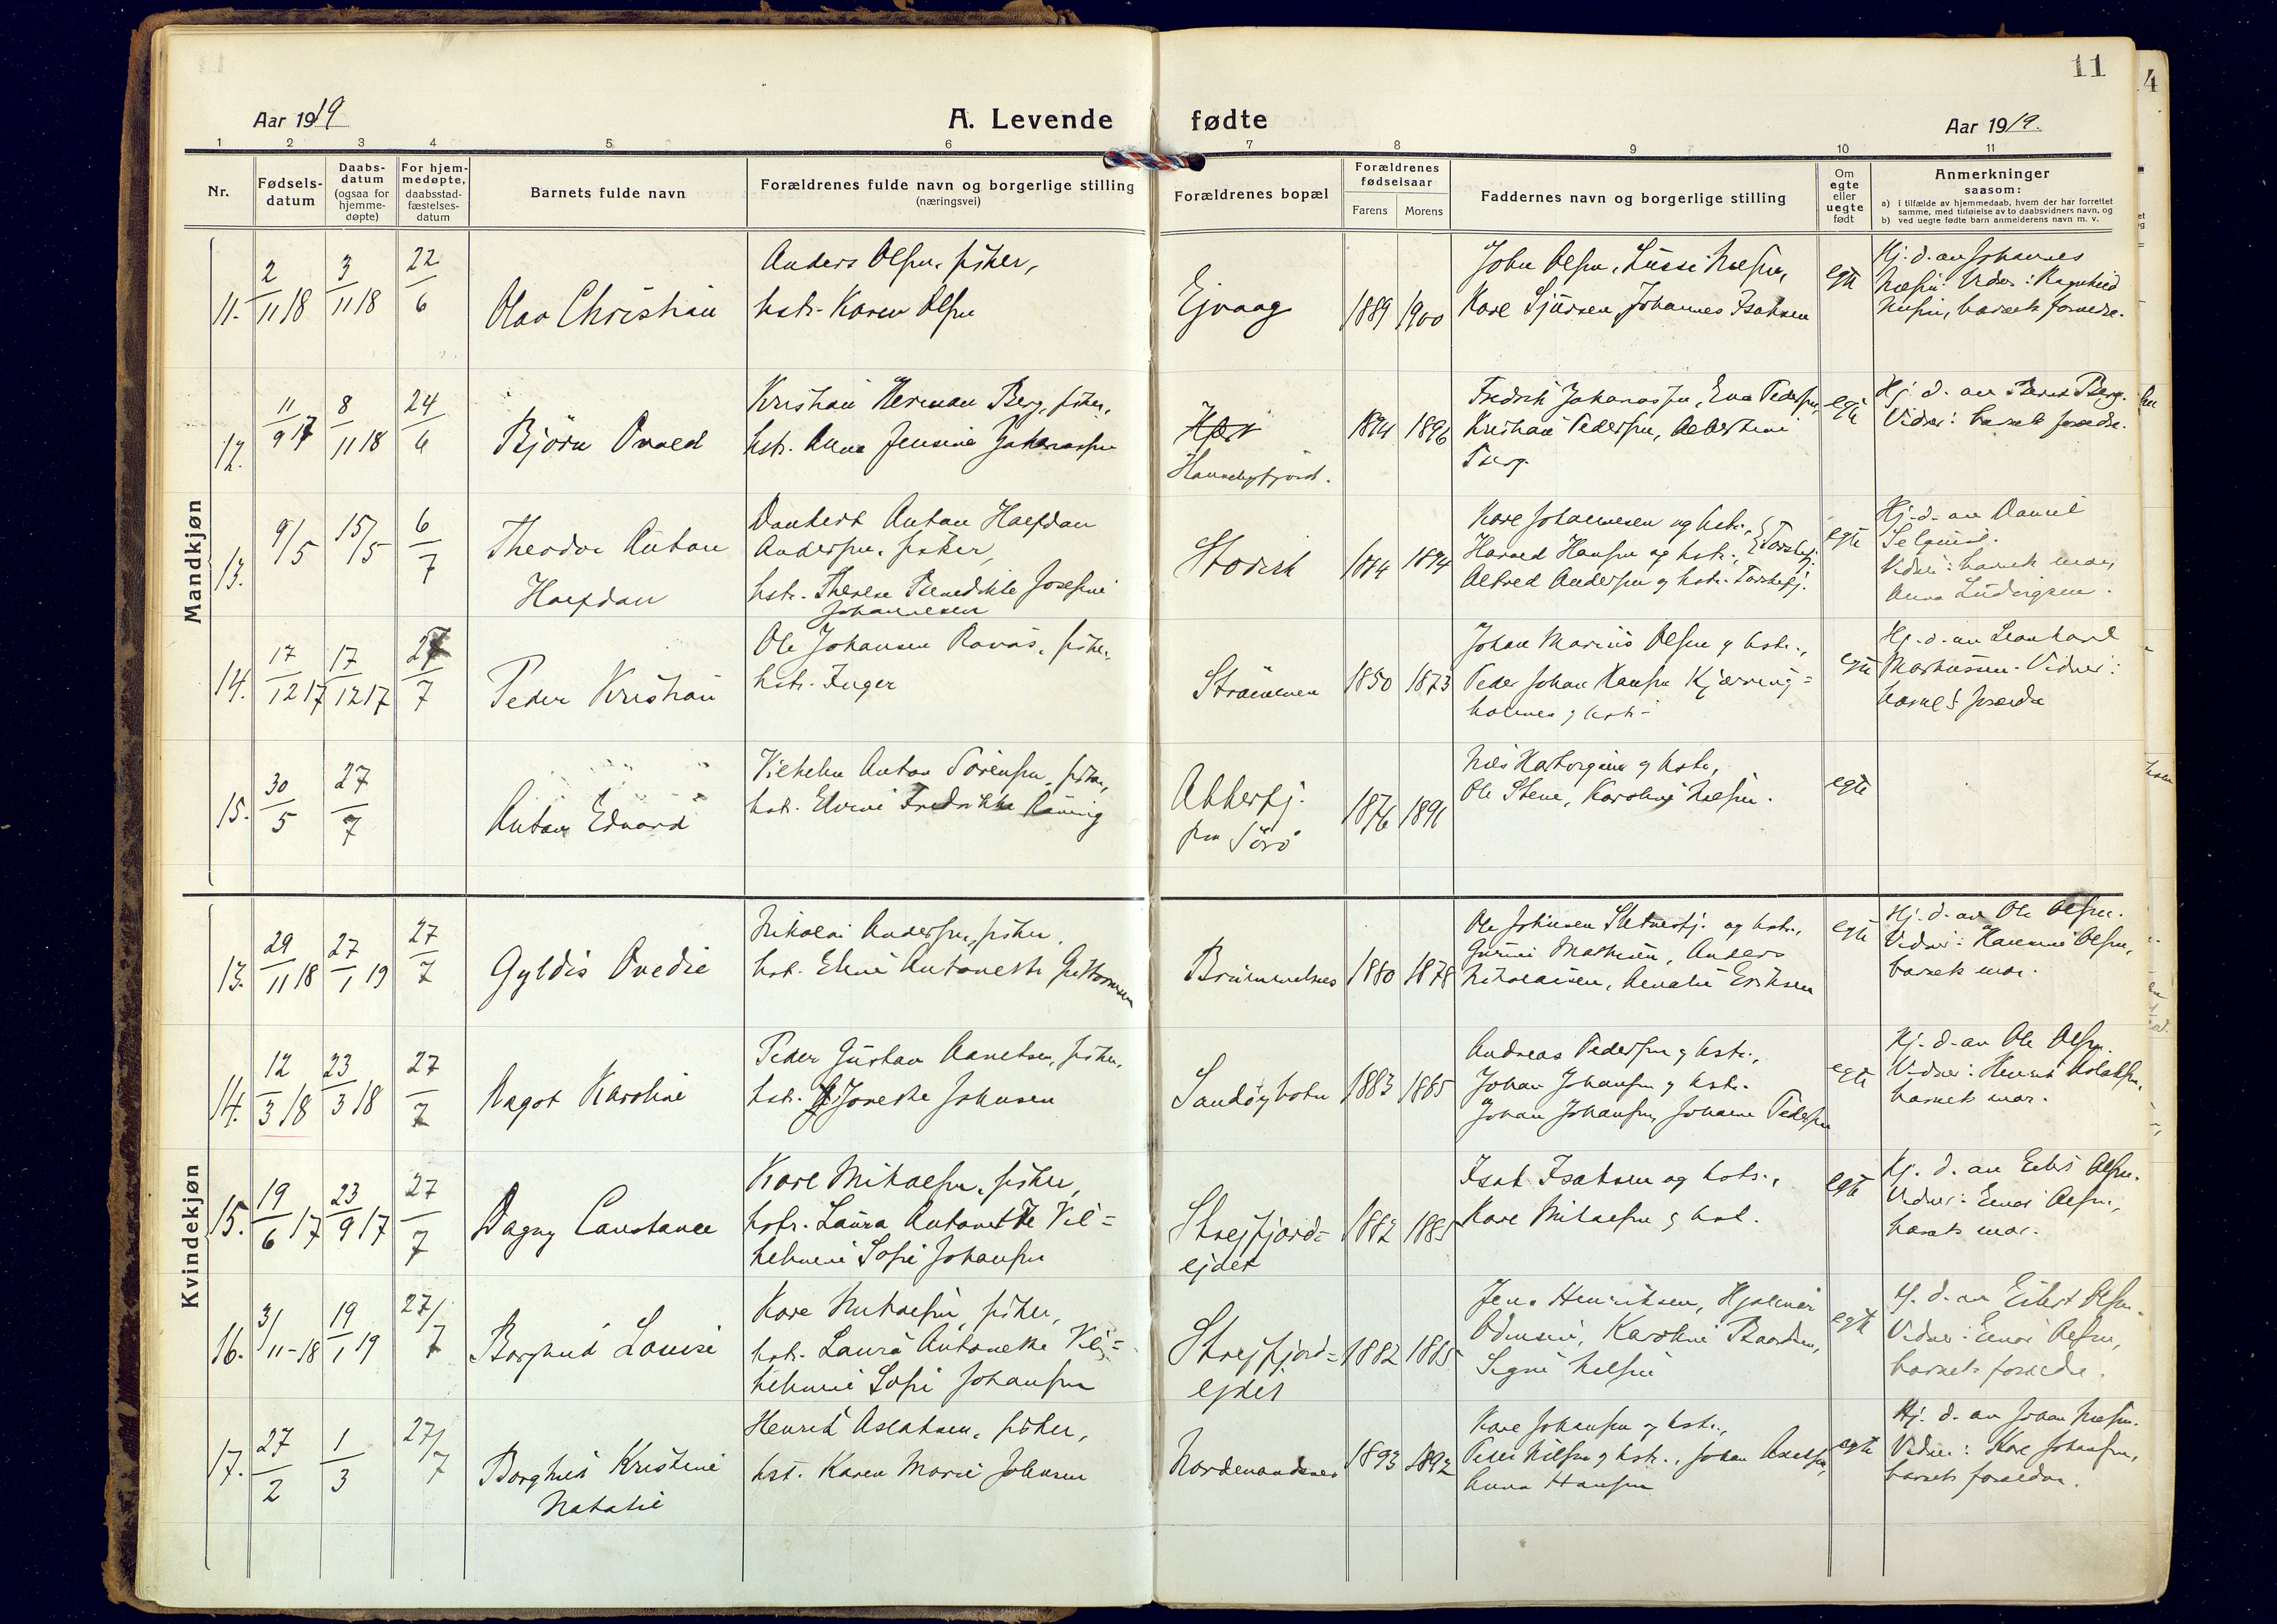 11
4
Aar 1919
A. Levende fødte
Aar 1919.
1 2 3 4 5 6 7 8 9 10 11
Nr.
Fødsels-
datum
Daabs-
datum
(ogsaa for
hjemme-
døpte)
For hjem-
medøpte,
daabsstad-
fæstelses-
datum
Barnets fulde navn
Forældrenes fulde navn og borgerlige stilling
(næringsvei)
Forældrenes bopæl
Forældrenes
fødselsaar
Farens Morens
Faddernes navn og borgerlige stilling
Om
egte
eller
uegte
født
Anmerkninger
saasom:
a) i tilfælde av hjemmedaab, hvem der har forrettet
samme, med tilføielse av to daabsvidners navn, og
b) ved uegte fødte barn anmelderens navn m. v.
Mandkjøn
11.
2/11 18
3/11 18
22/6
Olav Christian
Anders Olsen, fisker,
hstr. Karen Olsen
Ejvaag
1889 1900
John Olsen,
Karl Sjursen, Johannes Isaksen
egte
Hj. d. av Johannes
barnets forældre.
12.
11/9 17
8/11 18
24/6
Björn Ovald
Kristian Herman Berg, fisker,
hstr. Anna Jensine Johannessen
1894 1896
Fredrik Johanassen, Eva Pedersen,
Kristian Pedersen, Albertine
Berg.
egte
Hj. d. av Bernt Berg.
Vidner: barnets forældre.
13.
9/5
15/5
6/7
Theodor Anton
Halfdan
Anton Halfdan
Andersen, fisker,
hstr. Therese Benedikte Josefine
Johannesen
Karl Johannesen og hstr.,
Harald Hansen og hstr.,
Alfred Andersen og hstr.
egte
Hj. d. av Daniel
Vidner: barnets mor,
Anna Ludvigsen.
14.
17/12 17
17/12 17
27/7
Peder Kristian
Ole Johansen Ravas, fisker,
hstr. Inger
Strömmen
1850 1873
Johan Marius Olsen og hstr.,
Peder Johan Hansen Kjærring=
holmen og hstr.
egte
Hj. d. av Leonhard
Markussen. Vidner:
barnets forældre
15.
30/5
27/7
Anton Edvard
Vilhelm Anton Sörensen, fisker,
hstr. Elvine Fredrikke Röning
Akkerfj.
paa Sörö
1876 1891
og hstr.,
Ole Stene, Karoline Nilsen.
egte
Kvindekjøn
13.
29/11 18
27/1 19
27/7
Gyldis Ovedie
Nikolai Andersen, fisker,
hst. Eline Antonette Guttormsen
Brummelnes
1880 1878
Ole Johnsen og hstr.,
Gurine Mathisen, Anders
Nikolaisen, Amalie Eriksen
egte
Hj. d. av Ole Olsen.
Vidner: Hansine Olsen,
barnets mor.
14.
12/3 18
23/3 18
27/7
Dagot Karoline
Peder Gustav Aanetsen, fisker,
hst. Jorette Johnsen
Sandøybotn
1883 1885
Andreas Pedersen og hstr.,
Johan Johansen og hstr.
Johan Johansen, Johanne Pedersen
egte
Hj. d. av Ole Olsen.
Vidner: Henrik
barnets mor.
15.
19/6 17
23/9 17
27/7
Dagny Constance
Karl Mikalsen, fisker,
hstr. Laura Antonette Vil=
helmine Sofie Johansen
Strejfjord=
ejdet
1882 1885
Isak Isaksen og hstr.,
Karl Mikalsen og hst.
egte
Hj. d. av Eilert Olsen.
Vidner: Elnor Olsen,
barnets mor.
16.
3/11-18
19/1 19
27/7
Borghild Louise
Karl Mikalsen, fisker,
hstr. Laura Antonette Vil=
helmine Sofie Johansen
Strejfjord=
ejdet
1882 1885
Jens Henriksen, Hjalmar
Odinsen, Karoline Baardsen,
Signe Nilsen
egte
Hj. d. av Eilert Olsen.
Vidner: Elnor Olsen,
barnets forældre.
17.
27/2
1/3
27/7
Borghild Kristine
Natalie
Henrik Aslaksen, fisker,
hst. Karen Marie Johnsen
1893 1892
Karl Johansen og hstr.,
Peder Nilsen og hstr., Johan Axelsen,
Anna Hansen
egte
Hj. d. av Johan Nilsen.
Vidner: Karl Johansen,
barnets forældre.